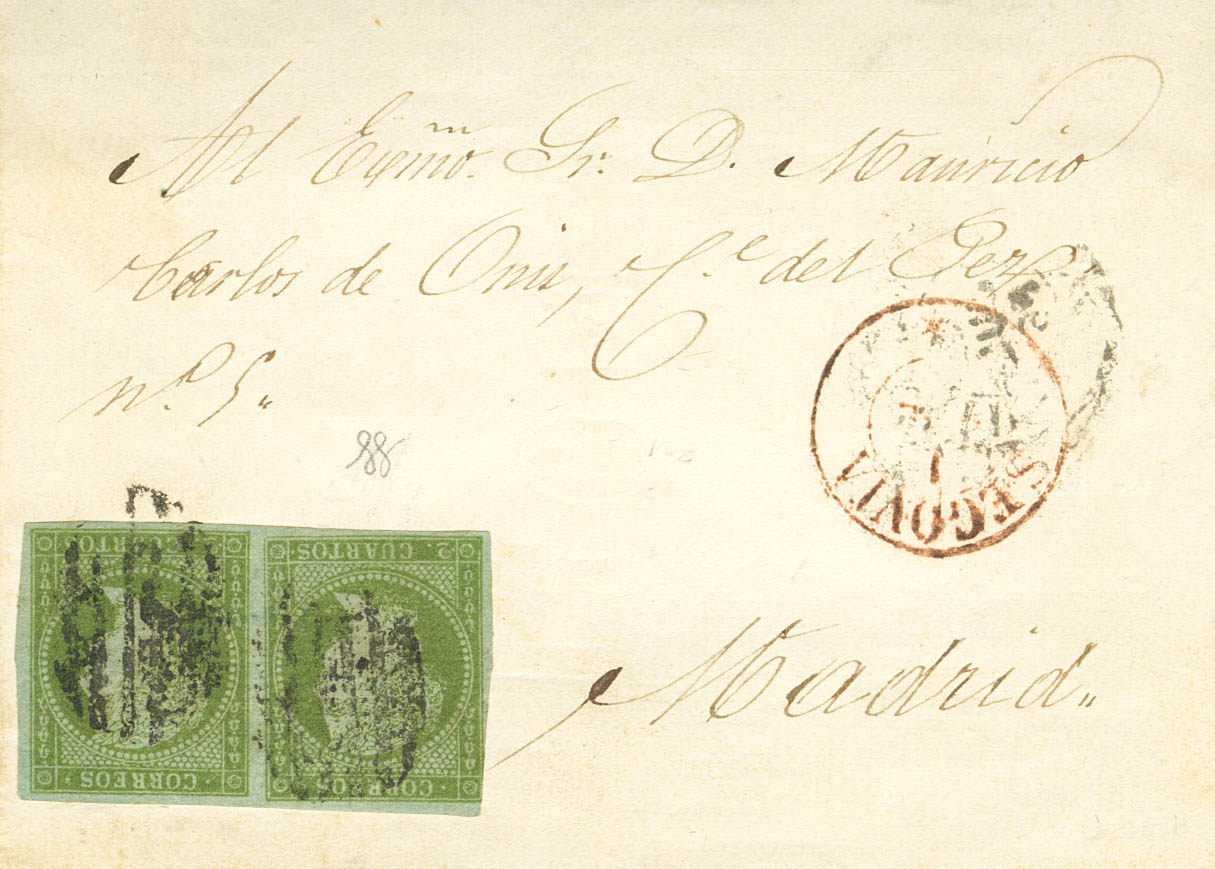 Al Exmo. Sr. D. Mauricio
Carlos de Onis, C.e del Pez
nº. 5.,
88
SEGOVIA
2 CUARTOS
CUARTOS
CORREOS
CORREOS
Madrid.,